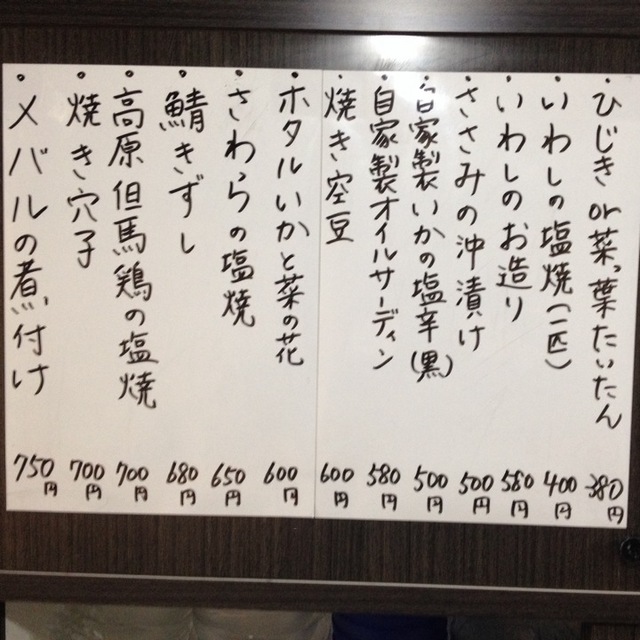 ・ひじきor菜っ葉たいたん 380円
・いわしの塩焼(一匹) 400円
・いわしのお造り 580円
・ささみの沖漬け 500円
・自家製いかの塩辛(黒) 500円
・自家製オイルサーディン 580円
・焼き空豆 600円
・ホタルいかと菜の花 600円
・さわらの塩焼 650円
・鯖きずし 680円
・高原但馬鶏の塩焼 700円
・焼き穴子 700円
・メバルの煮付け 750円